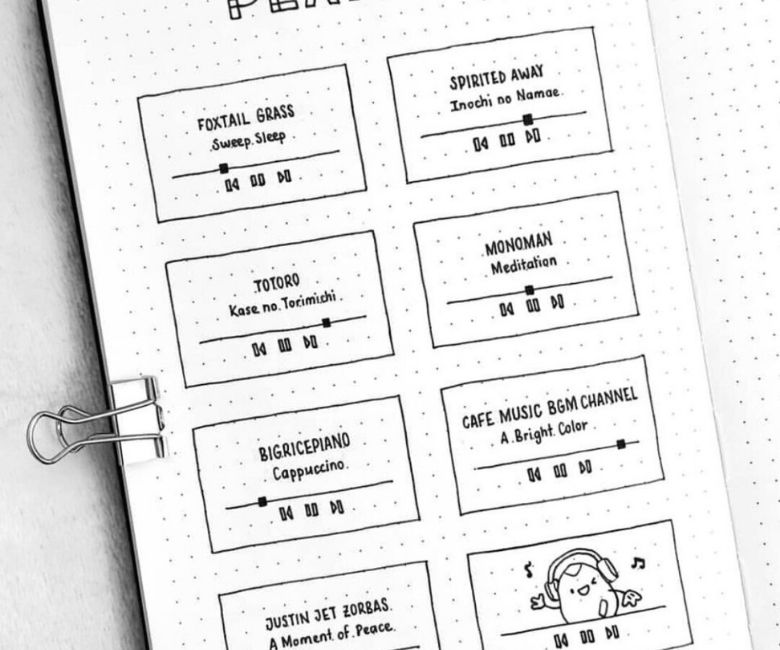 FOXTAIL GRASS
Sweep Sleep
SPIRITED AWAY
Inochi no Namae
TOTORO
Kase no Torimichi
MONOMAN
Meditation
BIGRICEPIANO
Cappuccino
CAFE MUSIC BGM CHANNEL
A Bright Color
JUSTIN JET ZORBAS
A Moment of Peace